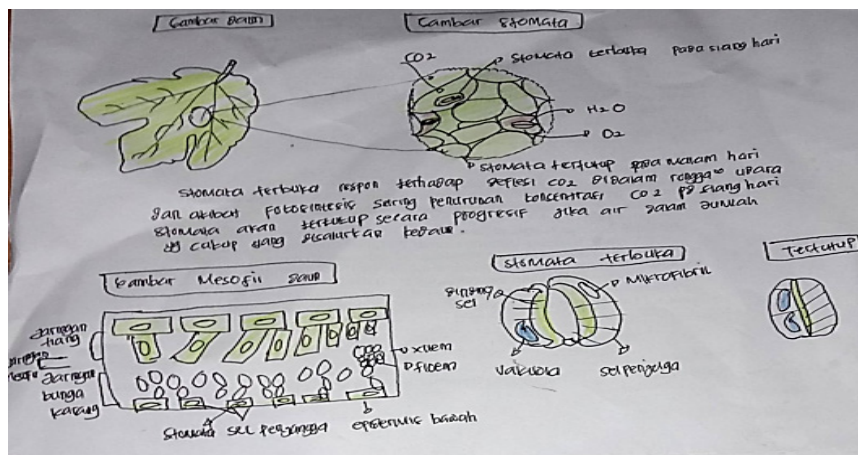 Gambar Daun
Gambar Stomata
CO2
Stomata terbuka pada siang hari
H2O
O2
Stomata tertutup pada malam hari
Stomata terbuka respon terhadap deflesi CO2 didalam rongga² udara
dan akibat fotosintesis sering penurunan konsentrasi CO2 pd siang hari
Stomata akan tertutup secara progresif jika air dalam jumlah
cukup yang disalurkan
Gambar Mesofil Daun
Stomata terbuka
Tertutup
Jaringan
tiang
Jaringan
bunga
karang
xilem
floem
Stomata
sel penjangga
epidermis bawah
dinding
sel
Mikrofibril
Vakuola
sel penjaga